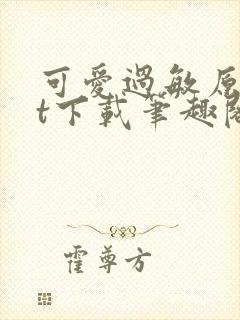 可愛過敏原
t下載筆趣閣
霍尊方